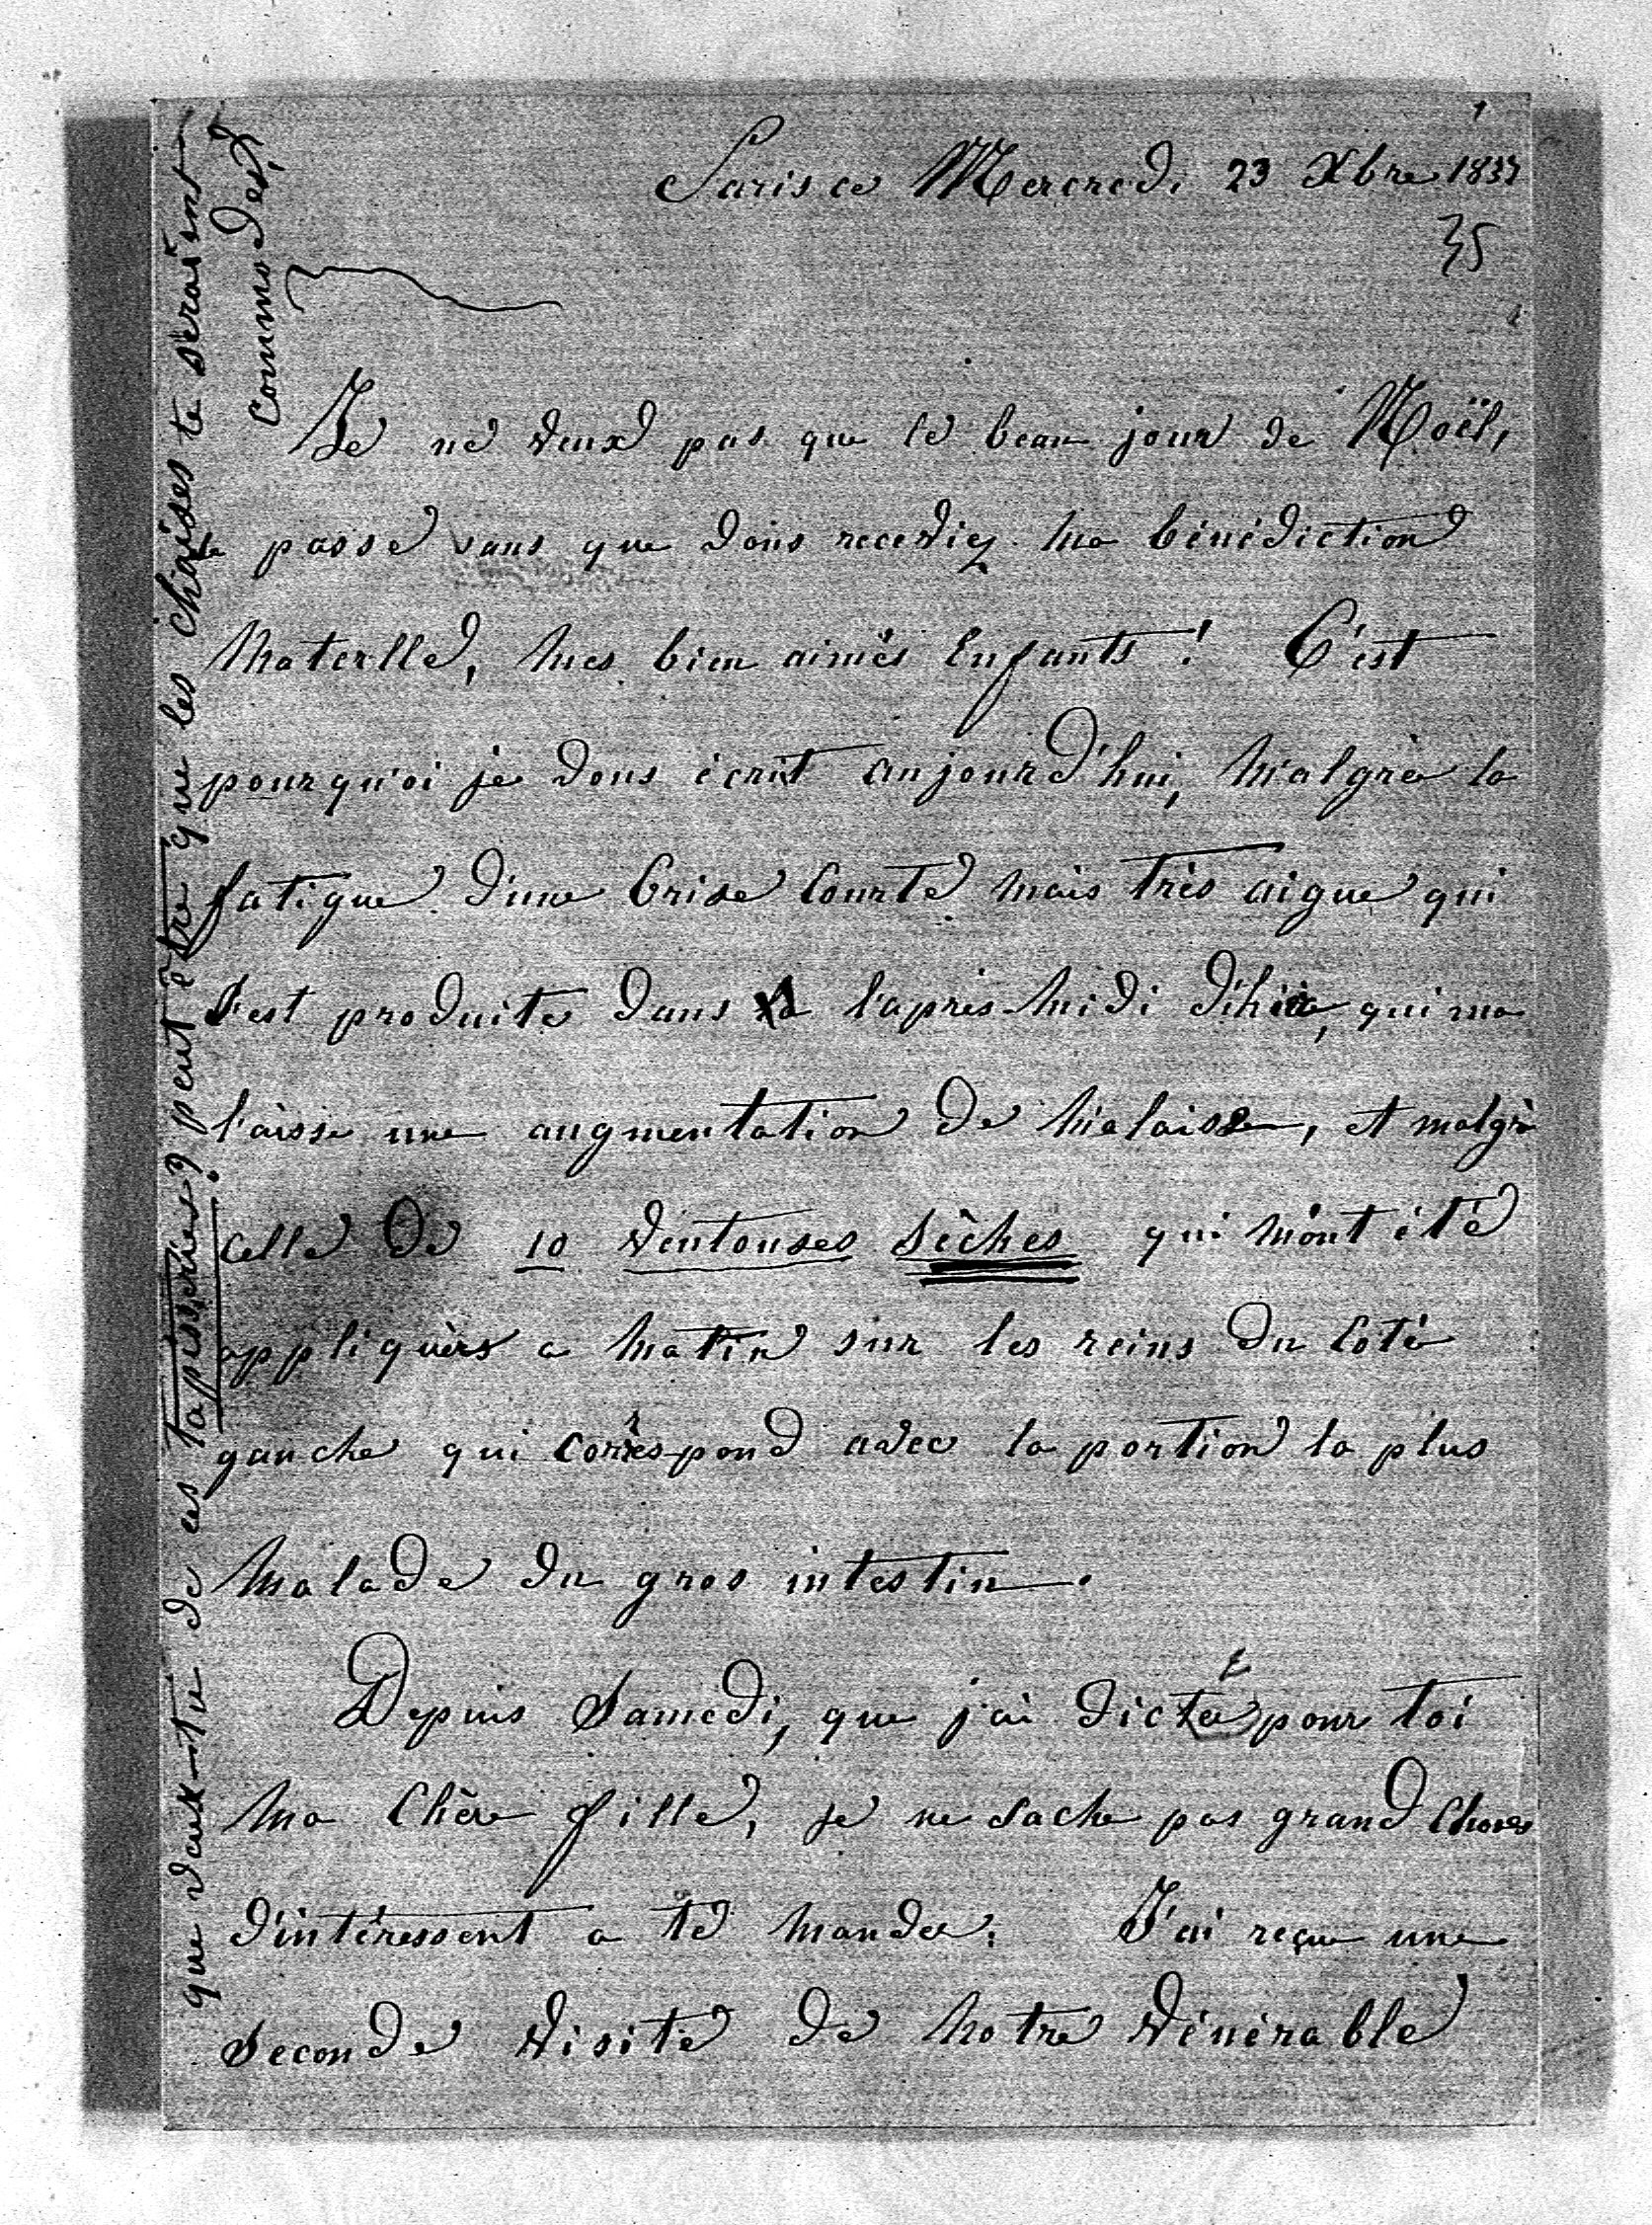 Paris ce Mercredi 23 Xbre 1835
35
Je ne veux pas que le beau jour de Noël,
se passe sans que vous receviez ma bénédiction
Materlle, mes bien aimés Enfants ! C'est
pourqu'oi je vous écrit aujourd'hui, malgrès la
fatigue d'une Crise Courte mais très aigue qui
s'est produite dans l'après-midi d'hier, qui me
l'aisse une augmentation de malaise, et malgré
celle de 10 ventouses sèches qui m'ont été
appliquées ce matin sur les reins du Coté
gauche qui correspond avec la portion la plus
malade du gros intestin.
Depuis Samedi, que j'ai dicté pour toi
ma Chère fille, je ne sache pas grand Choses
d'intéressent a te mander. J'ai reçue une
seconde visite de notre vénérable
que veux-tu de ces tapisseries ? peut être que les chaises te seraient
commodes ?